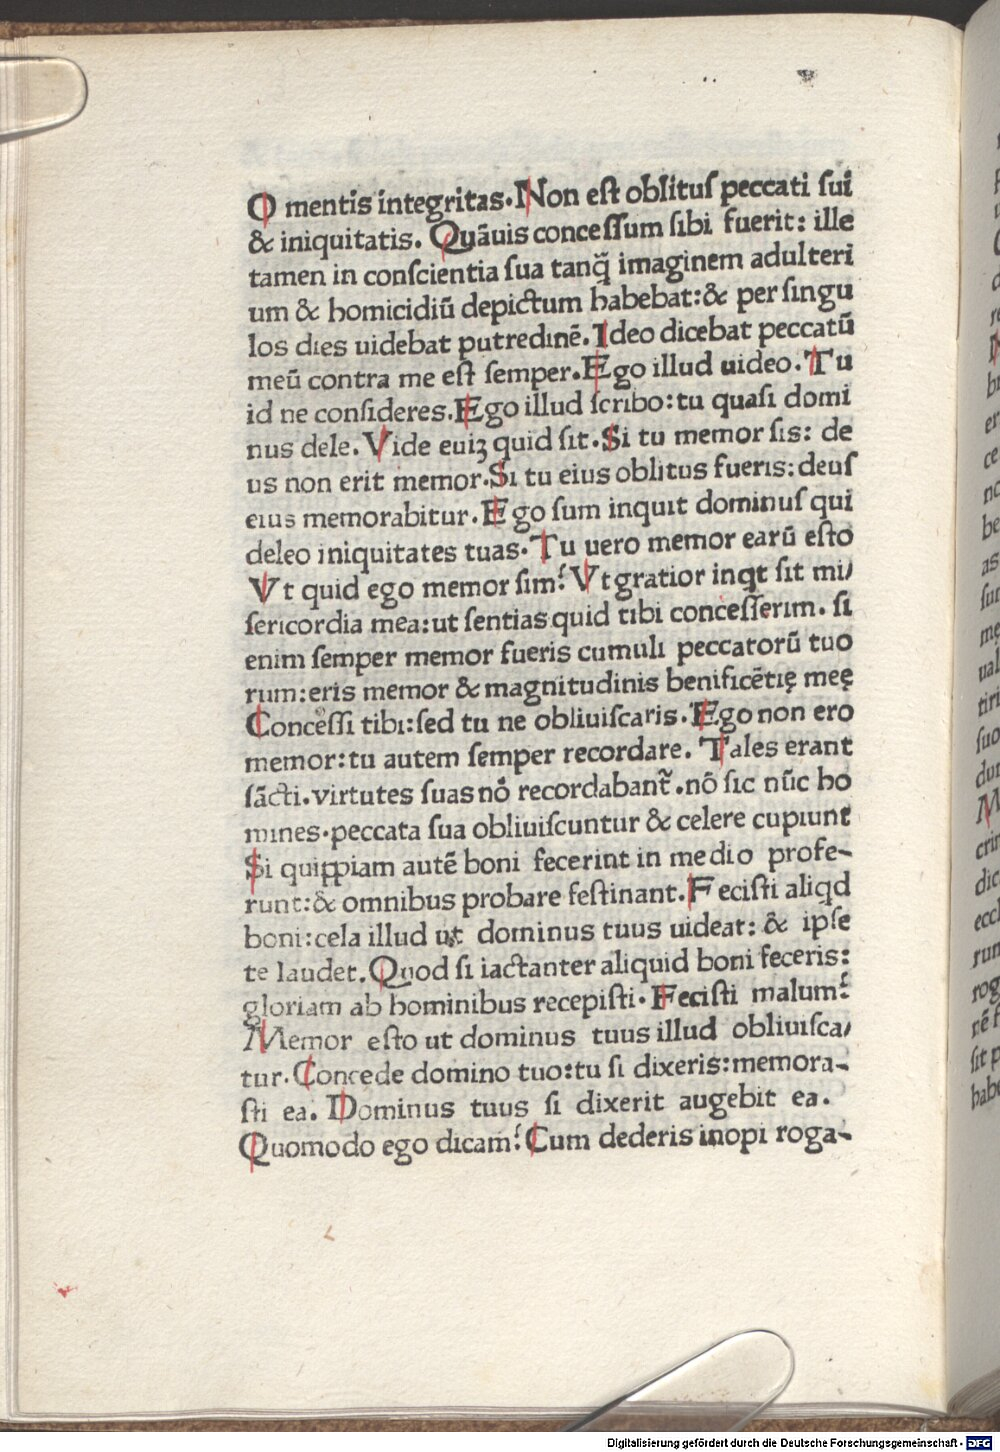 O mentis integritas. Non eſt oblituſ peccati ſui
& iniquitatis. Quãuis conceſſum ſibi fuerit: ille
tamen in conſcientia ſua tanq̃ imaginem adulteri
um & homicidiũ depictum habebat:& per ſingu
los dies uidebat putredinẽ. Ideo dicebat peccatũ
meũ contra me eſt ſemper. Ego illud uideo. Tu
id ne conſideres. Ego illud ſcribo: tu quaſi domi
nus dele. Vide euiꝫ quid ſit. Si tu memor ſis: de
us non erit memor. Si tu eius oblitus fueris: deuſ
eius memorabitur. Ego ſum inquit dominuſ qui
deleo iniquitates tuas. Tu uero memor earũ eſto
Vt quid ego memor ſim? Vt gratior inqt ſit mi/
ſericordia mea: ut ſentias quid tibi conceſſerim. ſi
enim ſemper memor fueris cumuli peccatorũ tuo
rum: eris memor & magnitudinis benificẽtię meę
Conceſſi tibi: ſed tu ne obliuiſcaris. Ego non ero
memor: tu autem ſemper recordare. Tales erant
ſãcti. virtutes ſuas nõ recordabant̃. nõ ſic nũc ho
mines. peccata ſua obliuiſcuntur & celere cupiunt
Si quippiam autẽ boni fecerint in medio profe-
runt: & omnibus probare feſtinant. Feciſti aliqd
boni: cela illud ut dominus tuus uideat: & ipſe
te laudet. Quod ſi iactanter aliquid boni feceris:
gloriam ab hominibus recepiſti. Feciſti malum?
Memor eſto ut dominus tuus illud obliuiſca/
tur. Concede domino tuo: tu ſi dixeris: memora-
ſti ea. Dominus tuus ſi dixerit augebit ea.
Quomodo ego dicam? Cum dederis inopi roga-
Digitalisierung gefördert durch die Deutsche Forschungsgemeinschaft - DFG